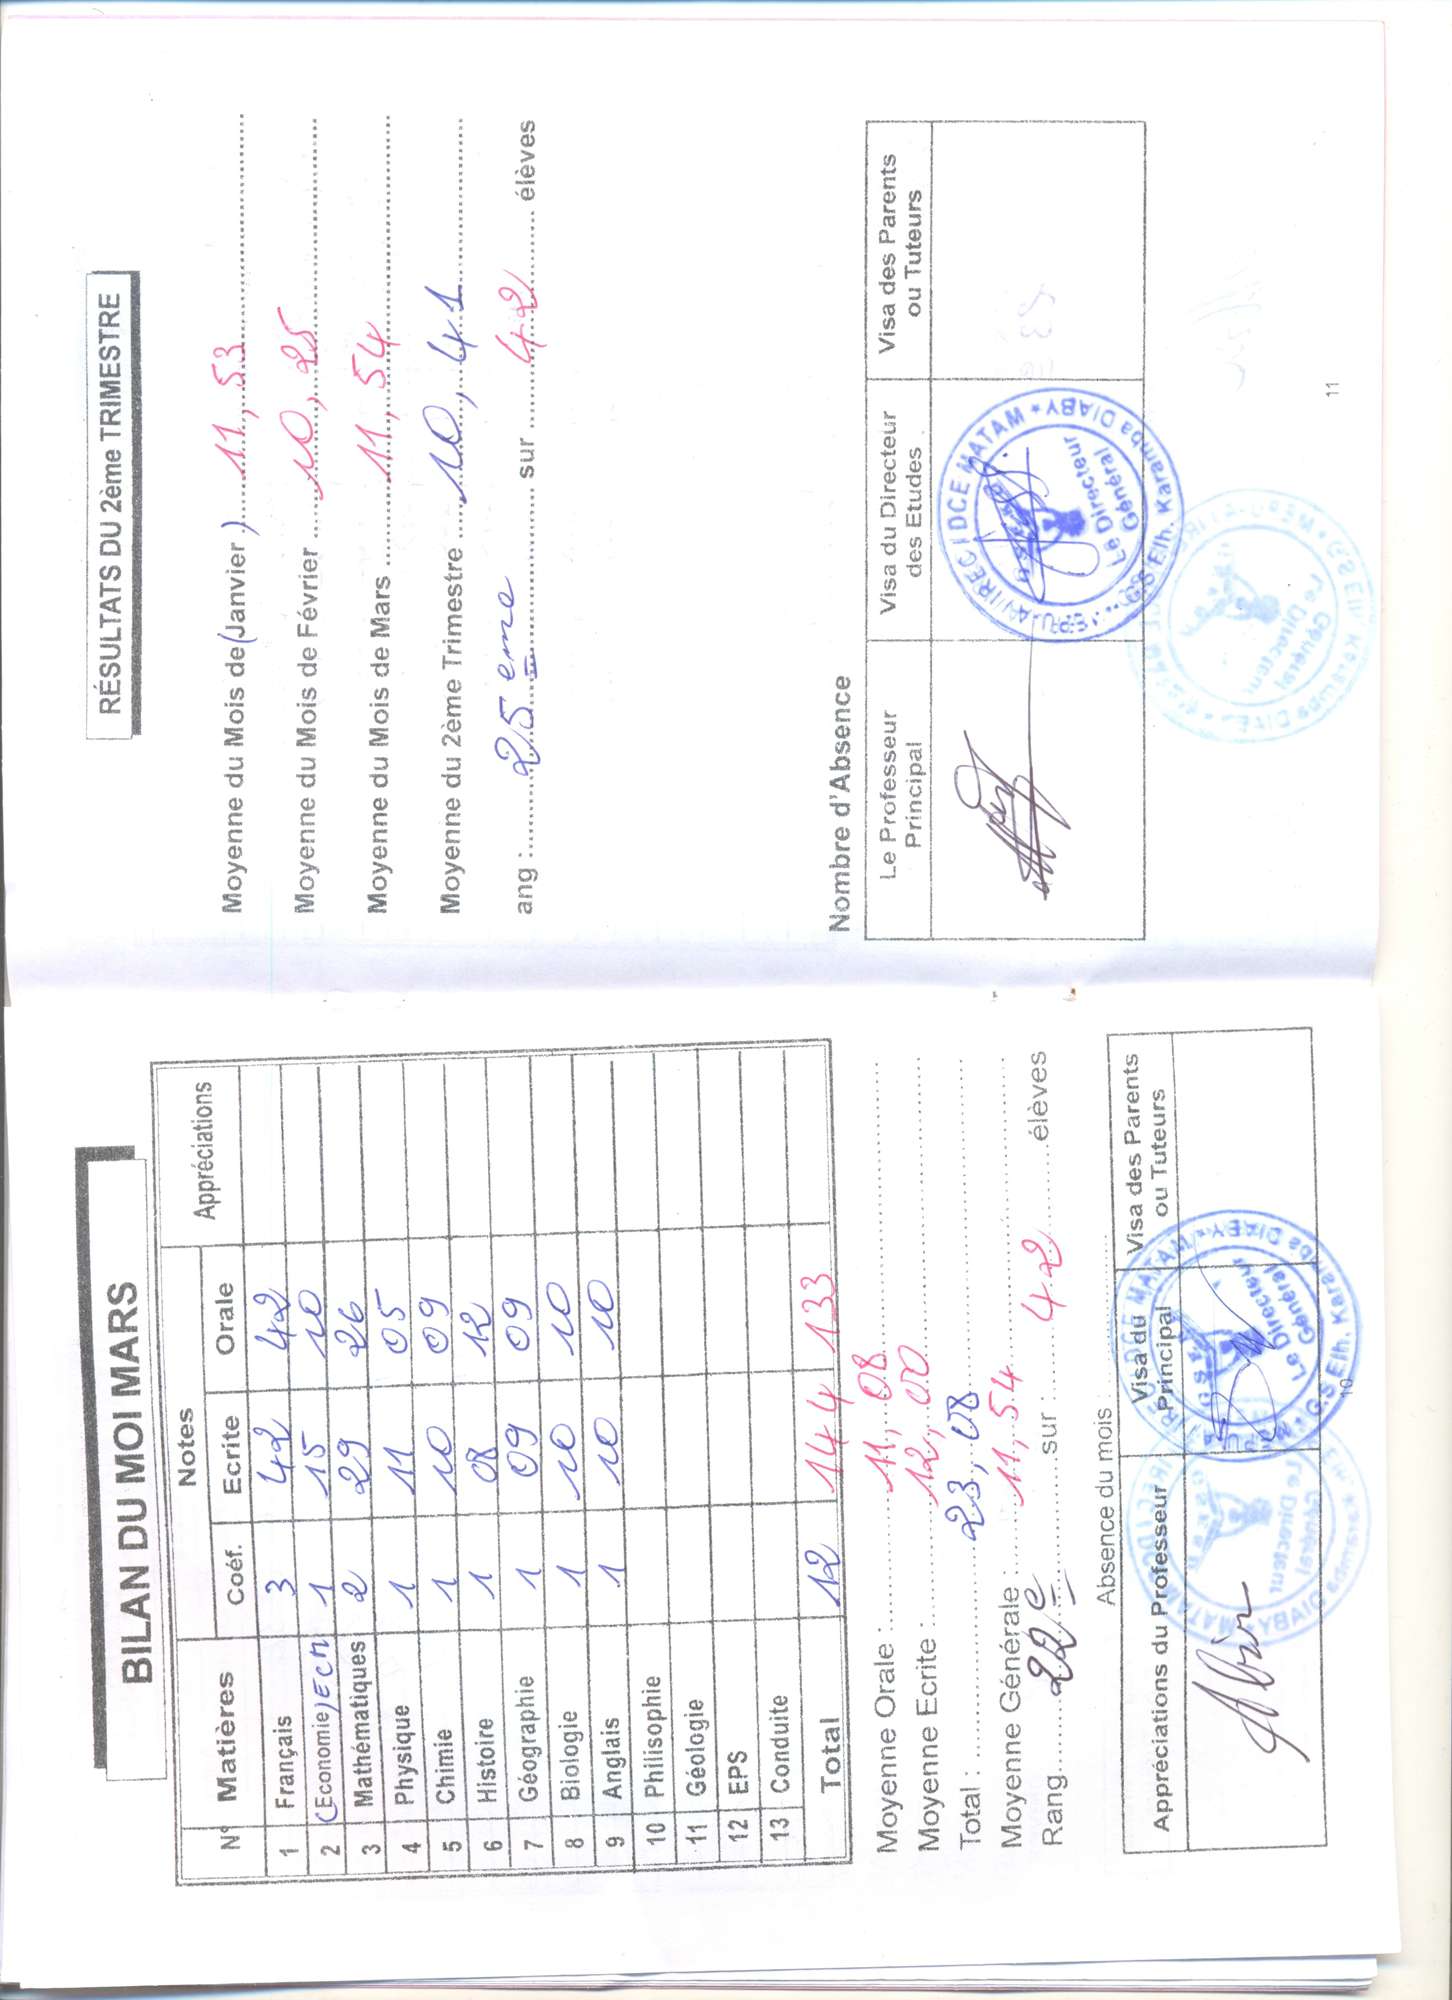 BILAN DU MOI MARS
N° Matières Notes Appréciations
Coéf. Ecrite Orale
1 Français 3 42 42
2 (Economie) ECM 1 15 10
3 Mathématiques 2 29 26
4 Physique 1 11 05
5 Chimie 1 10 09
6 Histoire 1 08 12
7 Géographie 1 09 09
8 Biologie 1 10 10
9 Anglais 1 10 10
10 Philisophie
11 Géologie
12 EPS
13 Conduite
Total 12 144 133
Moyenne Orale : 11,08
Moyenne Ecrite : 12,00
Total : 23,08
Moyenne Générale : 11,54
Rang 22e sur : 42 élèves
Absence du mois :
Appréciations du Professeur Visa du Principal Visa des Parents ou Tuteurs
Le Directeur Général
G.S Elh. Karamba DIABY
10
RÉSULTATS DU 2ème TRIMESTRE
Moyenne du Mois de (Janvier) 11,53
Moyenne du Mois de Février 10,25
Moyenne du Mois de Mars 11,54
Moyenne du 2ème Trimestre 10,41
ang : 25eme sur 42 élèves
Nombre d'Absence
Le Professeur Principal Visa du Directeur des Etudes Visa des Parents ou Tuteurs
DCE MATAM
Le Directeur Général
GS Elh. Karamba DIABY
11